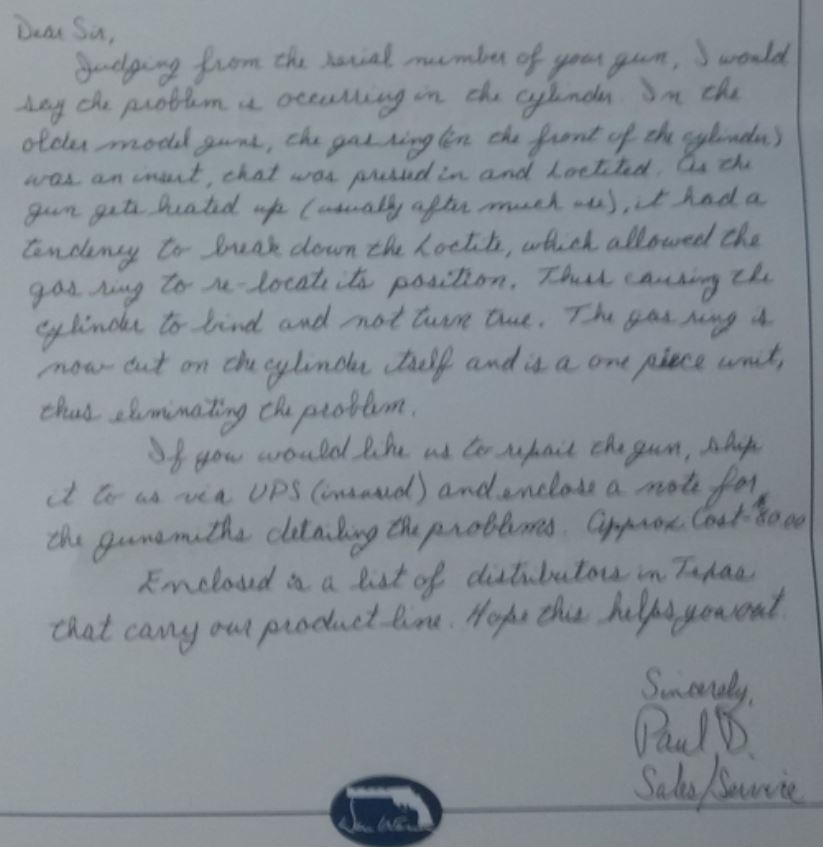 Dear Sir,
Judging from the serial number of your gun, I would
say the problem is occurring in the cylinder. In the
older model guns, the gas ring (in the front of the cylinder)
was an insert, that was pressed in and Loctited. As the
gun gets heated up (usually after much use), it had a
tendency to break down the Loctite, which allowed the
gas ring to re-locate its position. Thus causing the
cylinder to bind and not turn true. The gas ring is
now cut on the cylinder itself and is a one piece unit,
thus eliminating the problem.
If you would like us to repair the gun, ship
it to us via UPS (insured) and enclose a note for
the gunsmiths detailing the problems. Approx. Cost - $80.00
Enclosed is a list of distributors in Texas
that carry our product line. Hope this helps you out.
Sincerely,
Paul D.
Sales/Service
Dan Wesson